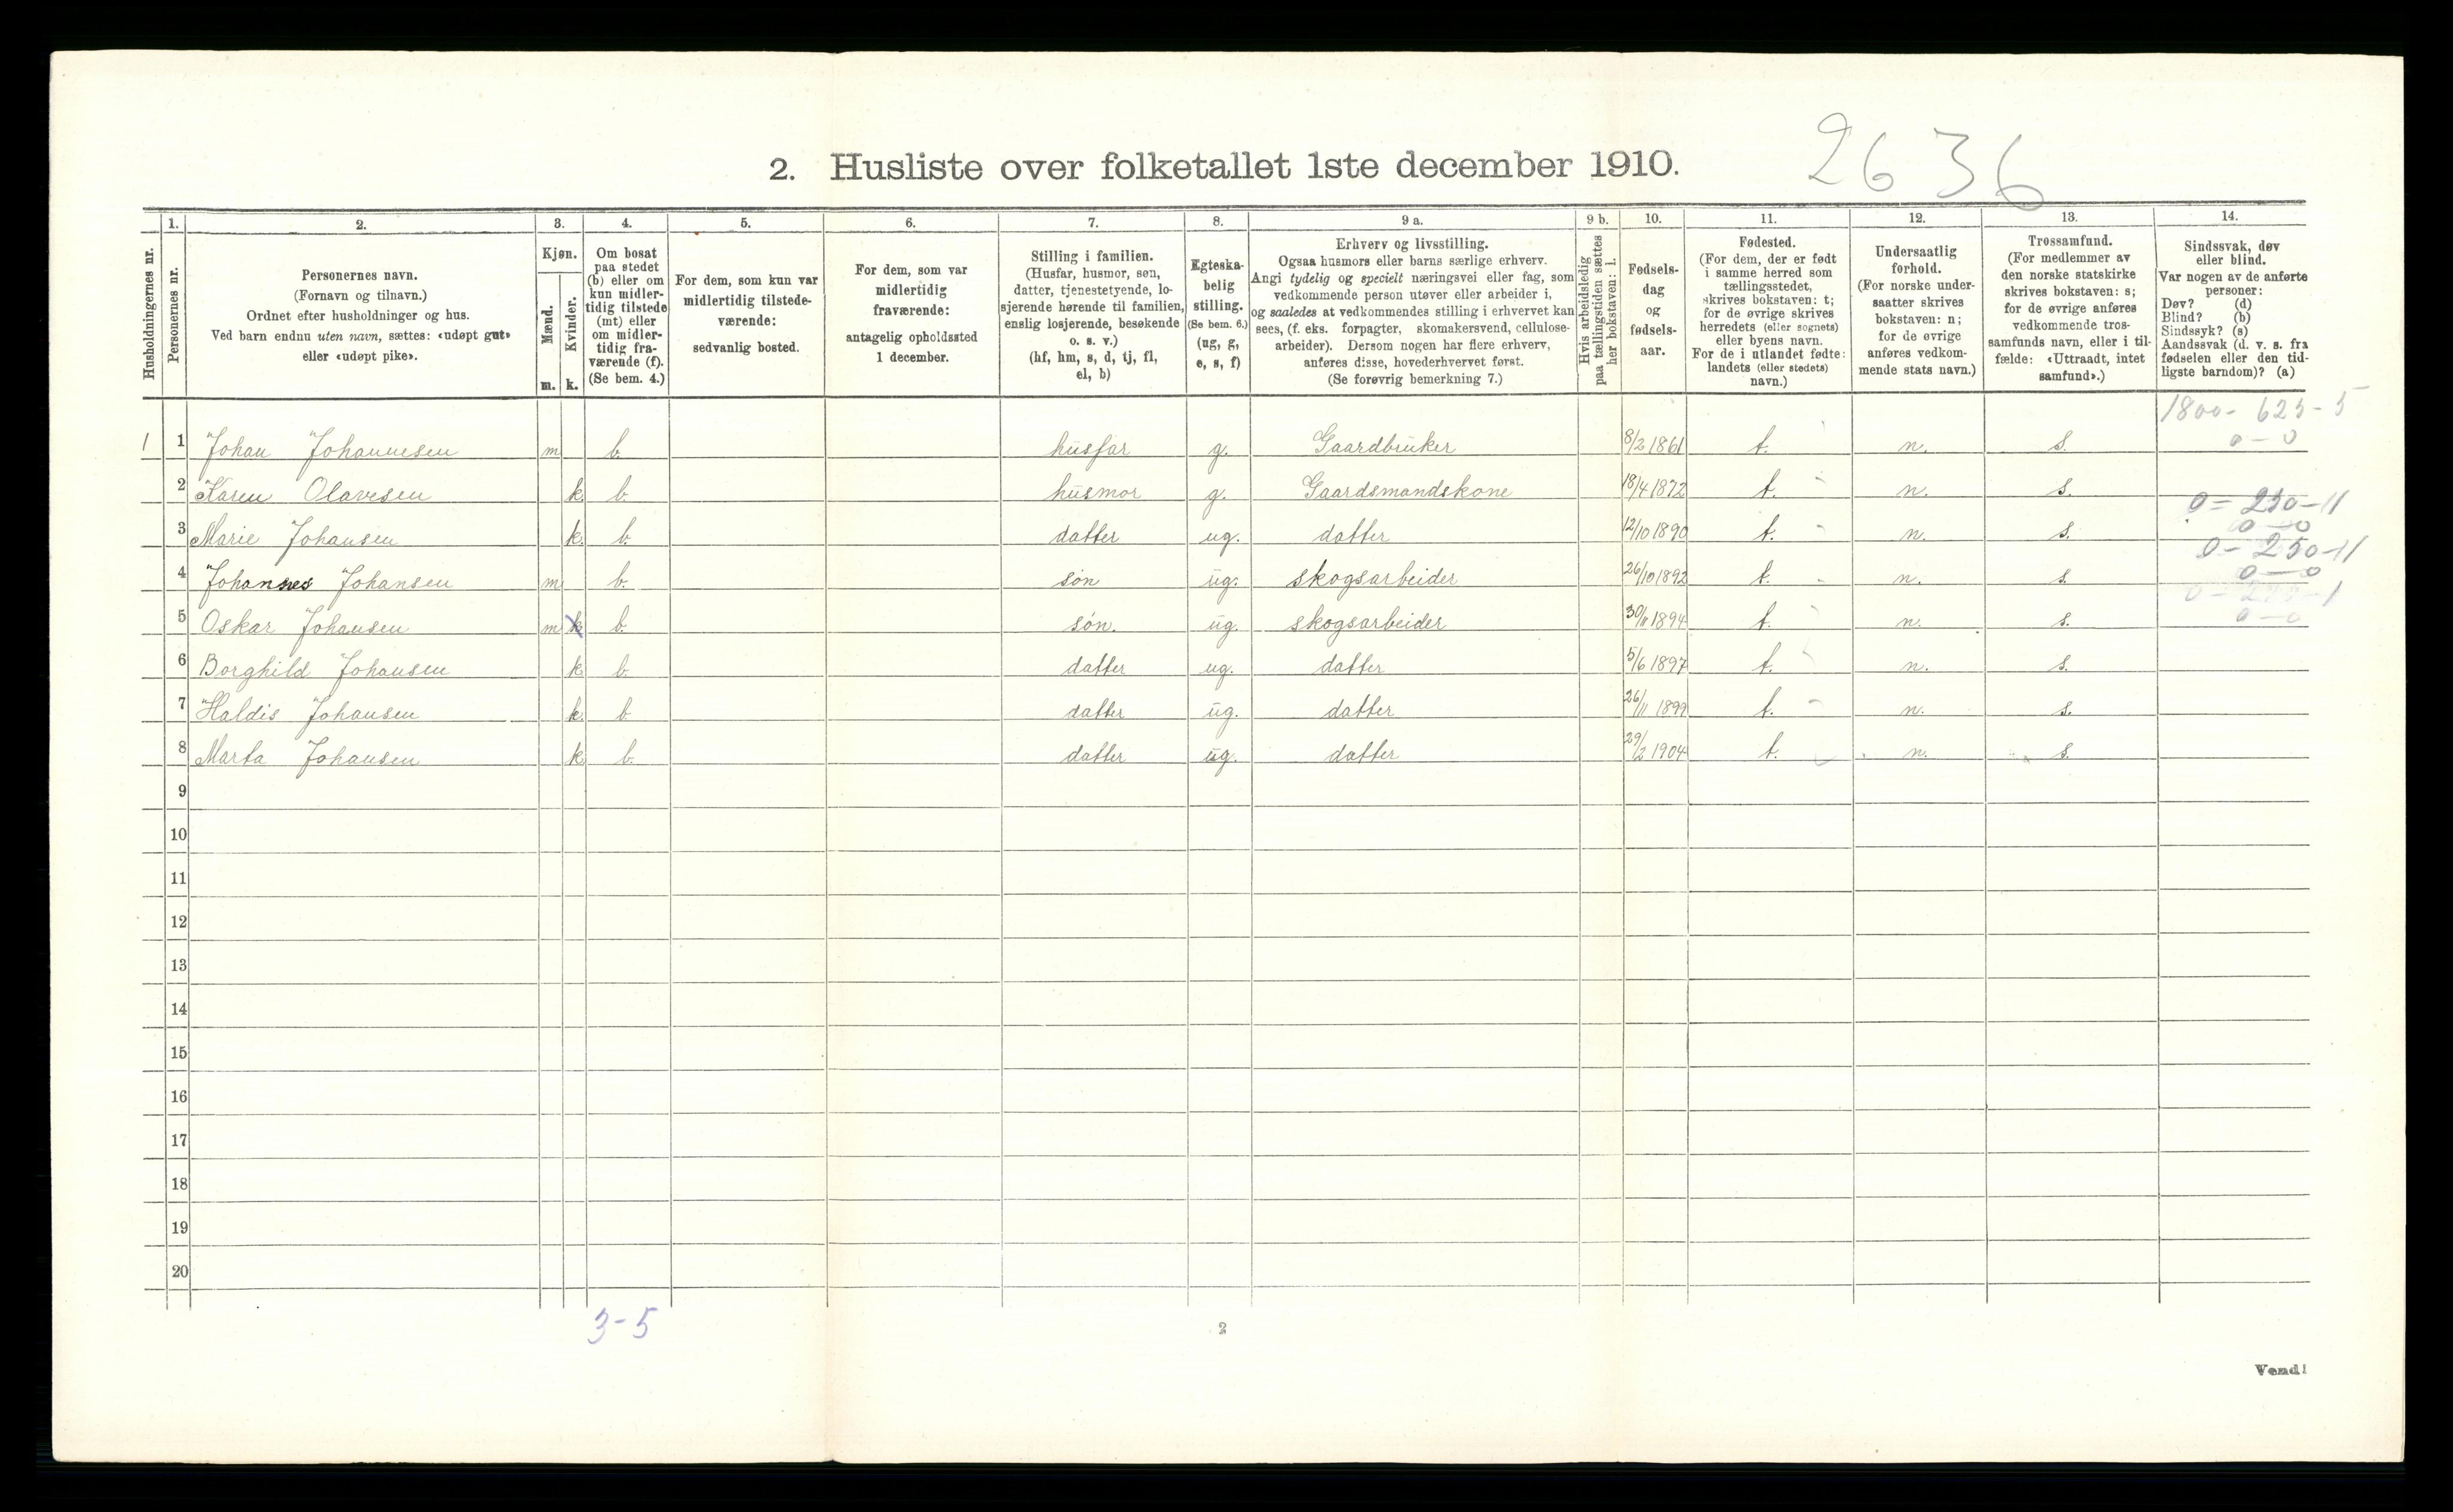 2636
2. Husliste over folketallet 1ste december 1910.
1. 2. 3. 4. 5. 6. 7. 8. 9 a. 9 b. 10. 11. 12. 13. 14.
Husholdningernes nr.
Personernes nr.
Personernes navn.
(Fornavn og tilnavn.)
Ordnet efter husholdninger og hus.
Ved barn endnu uten navn, sættes: «udøpt gut»
eller «udøpt pike».
Kjøn.
Mænd.
m.
Kvinder.
k.
Om bosat
paa stedet
(b) eller om
kun midler-
tidig tilstede
(mt) eller
om midler-
tidig fra-
værende (f).
(Se bem. 4.)
For dem, som kun var
midlertidig tilstede-
værende:
sedvanlig bosted.
For dem, som var
midlertidig
fraværende:
antagelig opholdssted
1 december.
Stilling i familien.
(Husfar, husmor, søn,
datter, tjenestetyende, lo-
sjerende hørende til familien,
enslig losjerende, besøkende
o. s. v.)
(hf, hm, s, d, tj, fl,
el, b)
Egteska-
belig
stilling.
(Se bem. 6.)
(ug, g,
e, s, f)
Erhverv og livsstilling.
Ogsaa husmors eller barns særlige erhverv.
Angi tydelig og specielt næringsvei eller fag, som
vedkommende person utøver eller arbeider i,
og saaledes at vedkommendes stilling i erhvervet kan
sees, (f. eks. forpagter, skomakersvend, cellulose-
arbeider). Dersom nogen har flere erhverv,
anføres disse, hovederhvervet først.
(Se forøvrig bemerkning 7.)
Hvis arbeidsledig
paa tællingstiden sættes
her bokstaven: l.
Fødsels-
dag
og
fødsels-
aar.
Fødested.
(For dem, der er født
i samme herred som
tællingsstedet,
skrives bokstaven: t;
for de øvrige skrives
herredets (eller sognets)
eller byens navn.
For de i utlandet fødte:
landets (eller stedets)
navn.)
Undersaatlig
forhold.
(For norske under-
saatter skrives
bokstaven: n;
for de øvrige
anføres vedkom-
mende stats navn.)
Trossamfund.
(For medlemmer av
den norske statskirke
skrives bokstaven: s;
for de øvrige anføres
vedkommende tros-
samfunds navn, eller i til-
fælde: «Uttraadt, intet
samfund».)
Sindssvak, døv
eller blind.
Var nogen av de anførte
personer:
Døv? (d)
Blind? (b)
Sindssyk? (s)
Aandssvak (d. v. s. fra
fødselen eller den tid-
ligste barndom)? (a)
1800 - 625 - 5
0 - 0
1 1 Johan Johannesen m b. husfar g. Gaardbruker 8/2 1861 t. n. s.
2 Karen Olavesen k b. husmor g. Gaardsmandskone 18/4 1872 t. n. s.
0 = 250 - 11
0 - 0
3 Marie Johansen k. b. datter ug. datter 12/10 1890 t. n. s.
0 - 250 - 11
0 - 0
4 Johannes Johansen m b. søn ug. skogsarbeider 26/10 1892 t. n. s.
0 - 0
5 Oskar Johansen m k b. søn. ug. skogsarbeider 30/11 1894 t. n. s.
6 Borghild Johansen k b. datter ug. datter 5/6 1897 t. n. s.
7 Haldis Johansen k b. datter ug. datter 26/11 1899 t. n. s.
8 Marta Johansen k b. datter ug. datter 29/2 1904 t. n. s.
9
10
11
12
13
14
15
16
17
18
19
20
3-5
2
Vend!